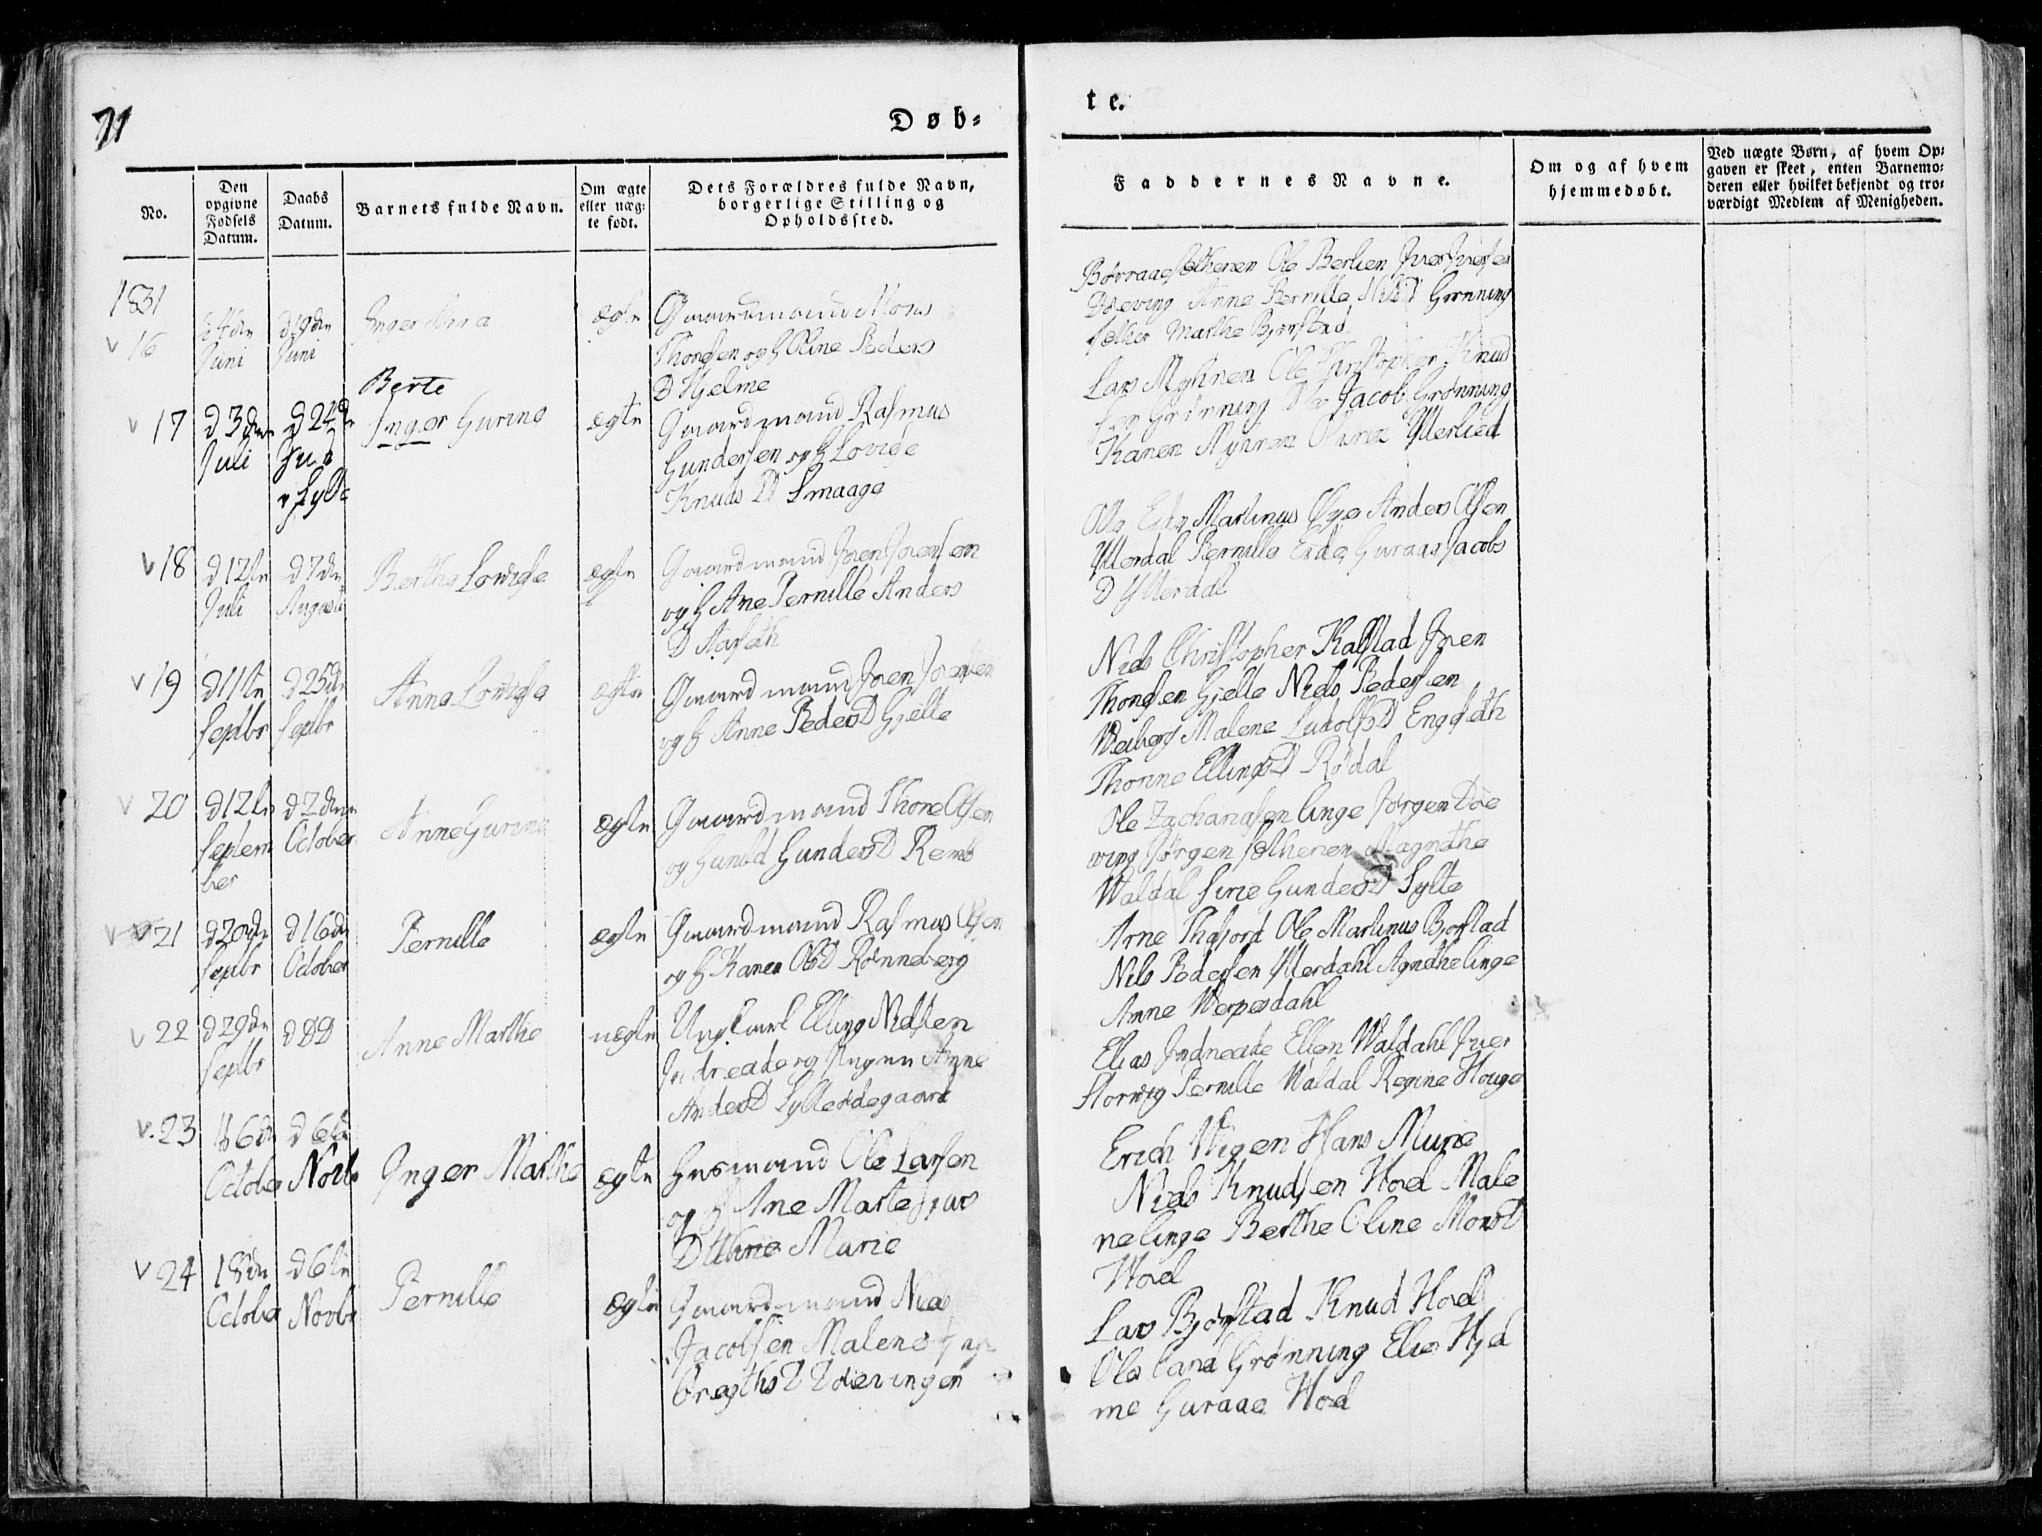 71
Døb-
te.
No.
Den opgivne Fødsels Datum.
Daabs Datum.
Barnets fulde Navn.
Om ægte eller uægte født.
Dets Forældres fulde Navn, borgerlige Stilling og Opholdssted.
Faddernes Navne.
Om og af hvem hjemmedøbt.
Ved uægte Børn, af hvem Opgaven er skeet, enten Barnemoderen eller hvilket bekjendt og troværdigt Medlem af Menigheden.
1831
16
Juni
d 19de
Juni
Inger
ægte
Gaardmand
Thoresen og H Oline Peders
D Hjelme
Ole Berlien Iver Iversen
Døeving Anne Pernille Grønning
Marthe Bjørstad
17
d 3die
Juli
d 24de
Juli
v Sylte
Berte
Inger Gurine
ægte
Gaardmand Rasmus
Gundersen og H Lovise
Knuds D Smaage
Lars Myhren Ole Christopher Knud
sen Grønning Jacob Grønning
Karen Myhren Ytterlied
18
d 12te
Juli
d 7de
August
Berthe Lovise
ægte
Gaardmand Joen Joensen
og H Ane Pernille Anders
D
Ole Eide Martinus Øyen Anders Olsen
Ytterdal Pernille Eide Guraae Jacobs
D Ytterdal
19
d 11te
Septbr
d 25de
Septbr
Anne Lovise
ægte
Gaardmand Joen Joensen
og H Anne Peders D Gjelle
Niels Christopher Kalstad Joen
Thoresen Gjelle Niels Pedersen
Malene Ludolfs D Engseth
Thorine Ellings D Rødal
20
d 12te
Septem
ber
d 2den
October
Anne Gurine
ægte
Gaardmand Thore Olsen
og Gunild Gunders D Remb
Ole Zachariasen Linge Jørgen Døe
ving Jørgen Magnethe
Waldal Sirie Gunders D Sylte
21
d 20de
Septbr
d 16de
October
Pernille
ægte
Gaardmand Rasmus Olsen
og H Karen Ols D Rønneberg
Arne Thafjord Ole Martinus Bjørstad
Nils Pedersen Ytterdahl Agnethe Linge
Anne Werpesdahl
22
d 29de
Septbr
d D D
Anne Marthe
uægte
Ungkarl Elling Nielsen
Indreeide og Pigen Anne
Anders D Sylteødegaard
Elias Indreeide Ellen Waldahl Iver
Storvig Pernille Waldal Regine Houge
23
d 6de
October
d 6te
Novbr
Inger Marthe
ægte
Husmand Ole Larsen
og H Ane Marte Ivers
D Murie
Erich Wigen Hans Murie
Niels Knudsen Hoel Male
ne Linge Berthe Oline Mons D
Hoel
24
18de
October
d 6te
Novbr
Pernille
ægte
Gaardmand Niels
Jacobsen Malene
Døevingen
Lars Bjørstad Knud Hoel
Ole Grønning Elie Hjel
me Guraae Hoel